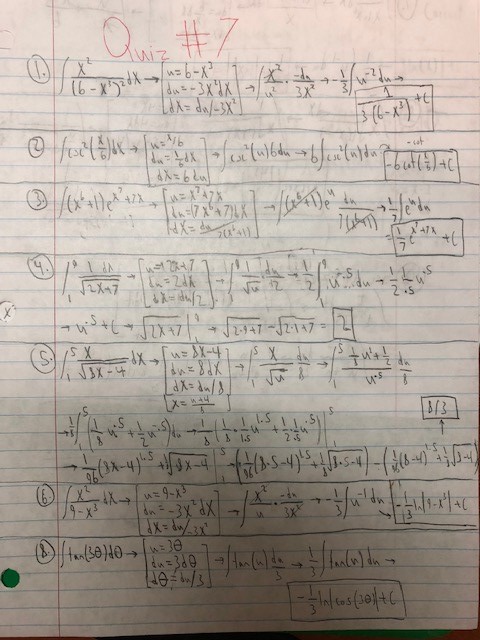 Quiz #7
1. ∫ x²/(6-x³)² dx → [u=6-x³ du=-3x²dx dx=du/-3x²] → ∫ x²/u² · -du/3x² → -1/3 ∫u⁻²du →
1/3(6-x³) + C
2 ∫csc²(x/6)dx → [u=x/6 du=1/6 dx dx=6du] → ∫csc²(u)6du → 6∫csc²(u)du → -cot
-6cot(x/6)+C
3. ∫(x⁶+1)e^(x⁷+7x) → [u=x⁷+7x du=(7x⁶+7)dx dx=du/7(x⁶+1)] → ∫(x⁶+1)e^u du/7(x⁶+1) → 1/7∫e^u du
= 1/7 e^(x⁷+7x) + C
4. ∫₁⁹ 1dx/√(2x+7) → [u=2x+7 du=2dx dx=du/2] → ∫₁⁹ 1/√u · du/2 → 1/2∫₁⁹ u^-.5 du → 1/2 · 1/.5 u^.5
→ u^.5+C → √(2x+7) |₁⁹ → √(2·9+7) - √(2·1+7) = 2
5. ∫₁⁵ x/√(8x-4) dx → [u=8x-4 du=8dx dx=du/8 x=(u+4)/8] → ∫₁⁵ x/√u du/8 → ∫₁⁵ (1/8 u+1/2)/u^.5 du/8
8/3
→ 1/8∫₁⁵(1/8 u^.5 + 1/2 u^-.5)du → 1/8(1/8 · 1/1.5 u^1.5 + 1/2 · 1/.5 u^.5)|₁⁵
→ 1/96(8x-4)^1.5 + 1/8√(8x-4) |₁⁵ → (1/96(8·5-4)^1.5 + 1/8√(8·5-4)) - (1/96(8-4)^1.5 + 1/8√(8-4))
6 ∫ x²/(9-x³) dx → [u=9-x³ du=-3x²dx dx=du/-3x²] → ∫ x²/u · -du/3x² → -1/3∫u⁻¹du → -1/3 ln|9-x³|+C
8. ∫tan(3θ)dθ → [u=3θ du=3dθ dθ=du/3] → ∫tan(u)du/3 → 1/3∫tan(u)du →
-1/3 ln|cos(3θ)|+C